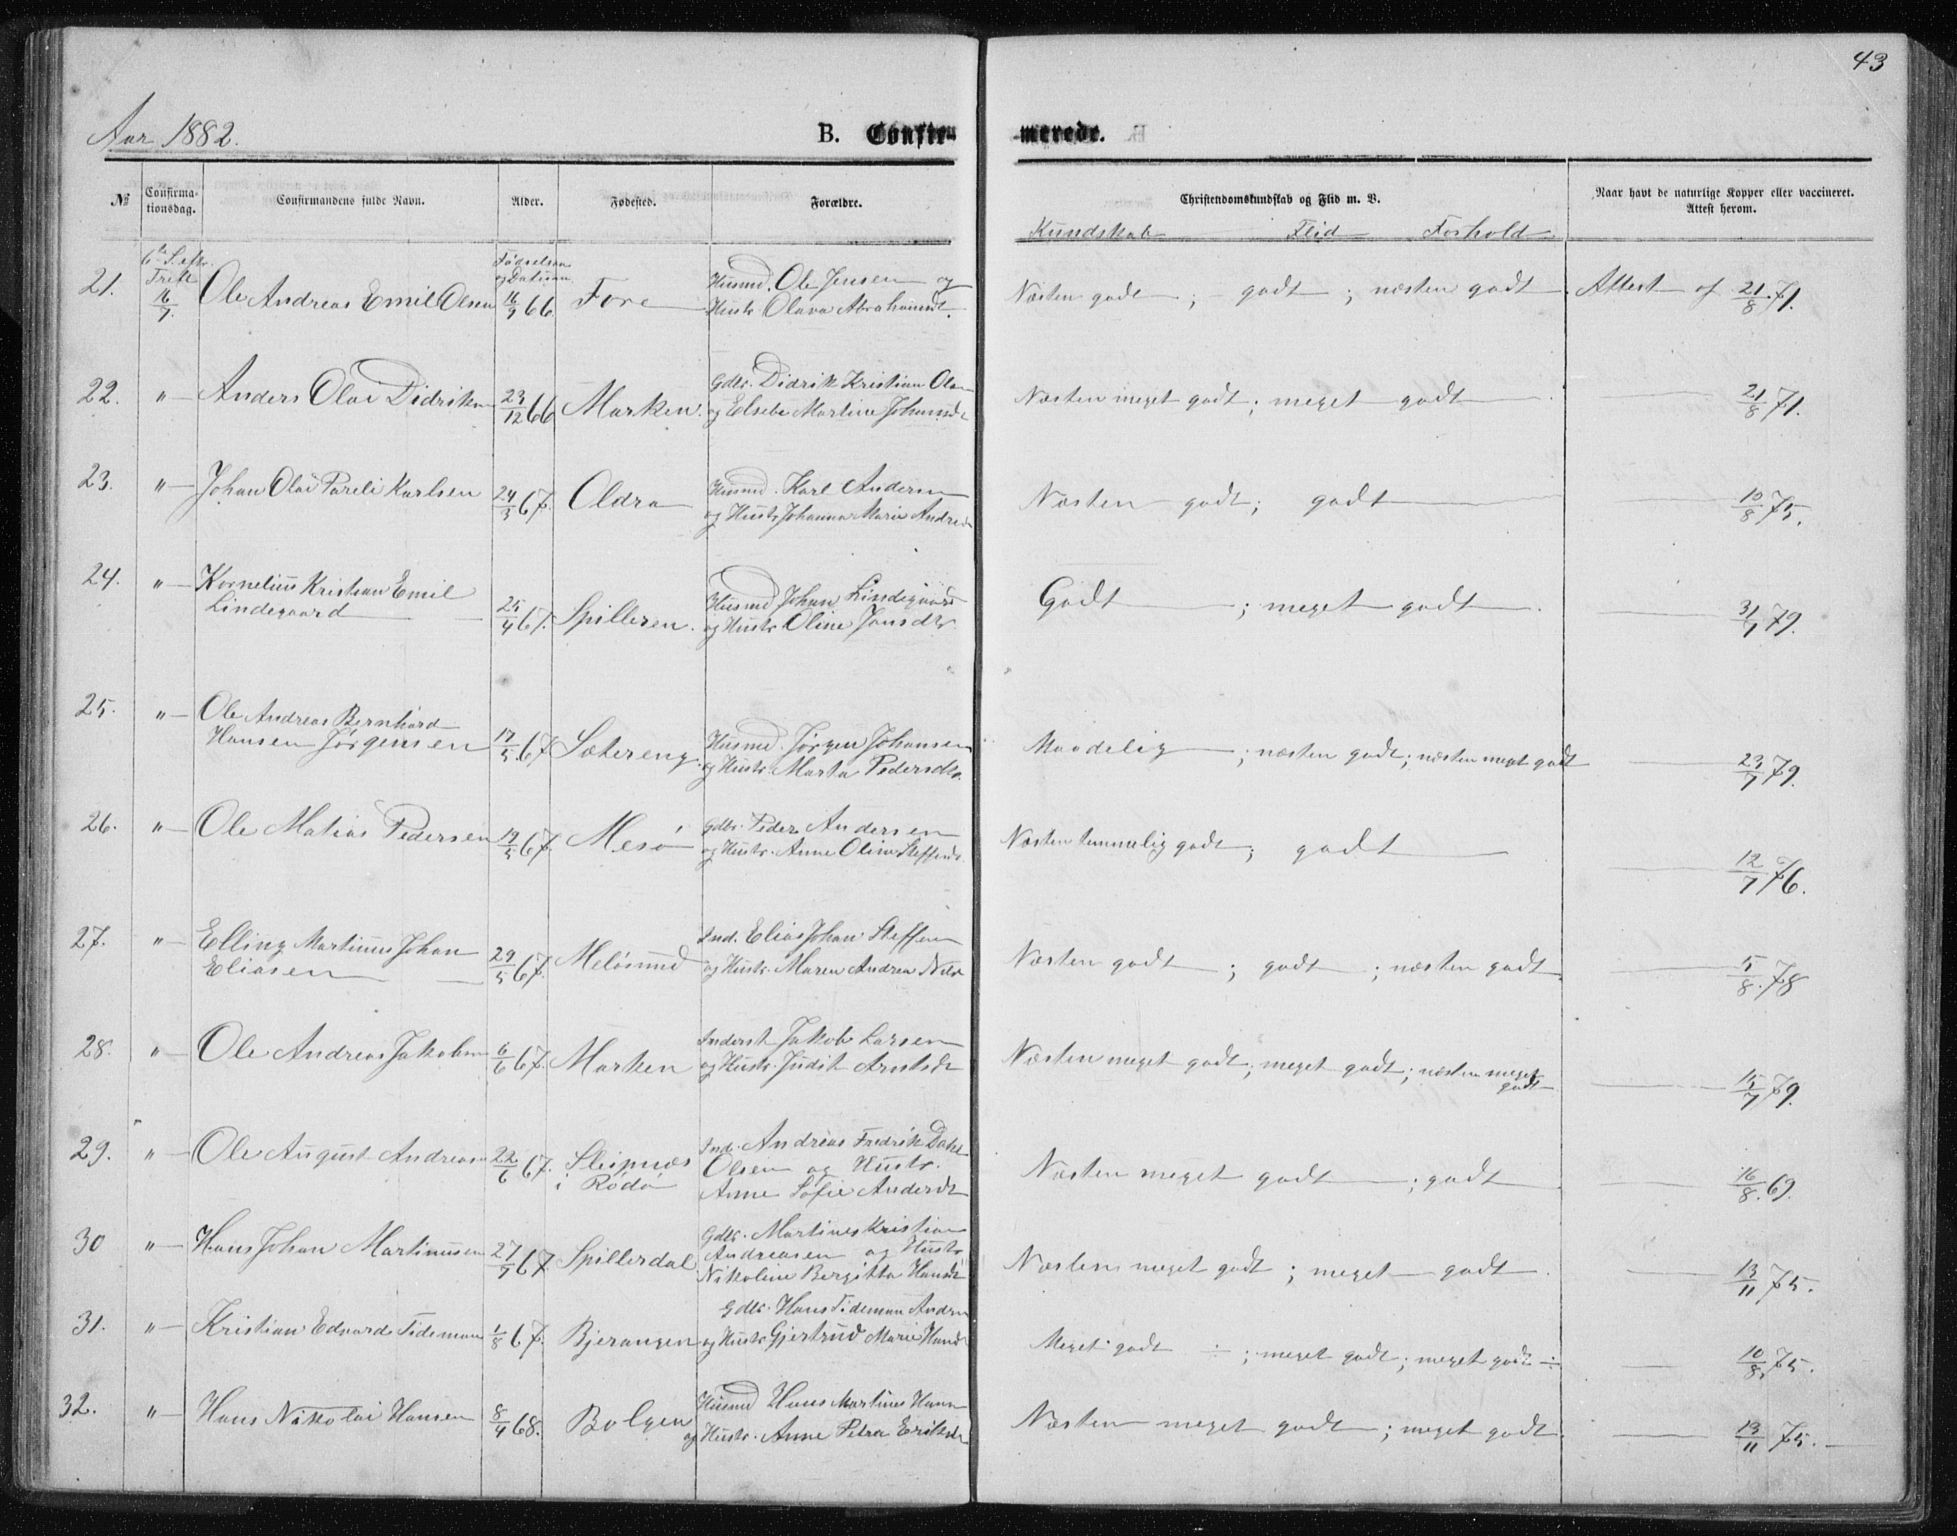 43
Aar 1882.
B. Confir-
merede.
№
Confirma-
tionsdag.
Confirmandens fulde Navn.
Alder.
Fødested.
Forældre.
Christendomskundskab og Flid m. V.
Kundskab Flid Forhold
Naar havt de naturlige Kopper eller vaccineret.
Attest herom.
6te S. eftr.
Fødselsaar
og Datum
21. Tref. 16/7. Ole Andreas Emil Olsen 16/9 66. Fore Husmd. Ole Jensen og
Hustr Olava Abrahamsdt.
Næsten godt ; godt ; næsten godt Attest af 21/8 71.
22. " Anders Olai Didriksen 23/12 66 Marken Gdbr. Didrik Kristian Olsen
og Elsebe Martine Johansdt
Næsten meget godt ; meget godt 21/8 71.
23. " Johan Olai Pareli Karlsen 24/3 67. Oldra Husmd. Karl Andersen
og Hustr Johanna Marie Andresd
Næsten godt ; godt 10/8 75.
24. " Kornelius Kristian Emil
Lindegaard 25/4 67. Spilleren. Husmd Johan Lindegaard
og Hustr Oline Jansdtr
Godt ; meget godt 31/7 79.
25. " Ole Andreas Bernhard
Hansen Jørgensen 17/5. 67 Sætereng. Husmd. Jørgen Johansen
og Hustr. Marta Pedersdtr.
Maadelig ; næsten godt ; næsten meget godt 23/7 79.
26. " Ole Matias Pedersen 19/5 67. Mesø Gdbr. Peder Andersen
og Hustr. Anne Oline Steffensd
Næsten temmelig godt ; godt 12/7 76.
27. " Elling Martinus Johan
Eliasen 29/5 67. Meløsund Ind. Elias Johan Steffen
og Hustr. Maren Andrea Nilsd
Næsten godt ; godt ; næsten godt 5/8. 78
28. " Ole Andreas Jakobsen 6/6 67. Marken Inderst Jakob Larsen
og Hustr. Judit Arntsdt
Næsten meget godt ; meget godt ; næsten meget
godt 15/7 79.
29. " Ole August Andreasen 22/6 67. Sleipnæs
i Rødø Ind. Andreas Fredrik
Olsen og Hustr.
Anne Sofie Andersdt
Næsten meget godt ; godt 16/8. 69.
30 " Hans Johan Martinusen 27/7 67. Spillerdal Gdbr. Martines Kristian
Andreasen og Hustr
Nikoline Bergitta Hansdt
Næsten meget godt ; meget godt 13/11 75.
31. " Kristian Edvard Tideman 1/8 67. Bjerangen Gdbr. Hans Tideman Andrea
og Hustr Gjertrud Marie Hansd
Meget godt ÷ ; meget godt ; meget godt ÷ 10/8. 75.
32. " Hans Nikolai Hansen 8/4 68. Bolgen Husmd Hans Martines Hansen
og Hustr. Anne Petra Eriksdt
Næsten meget godt ; meget godt 13/11 75.